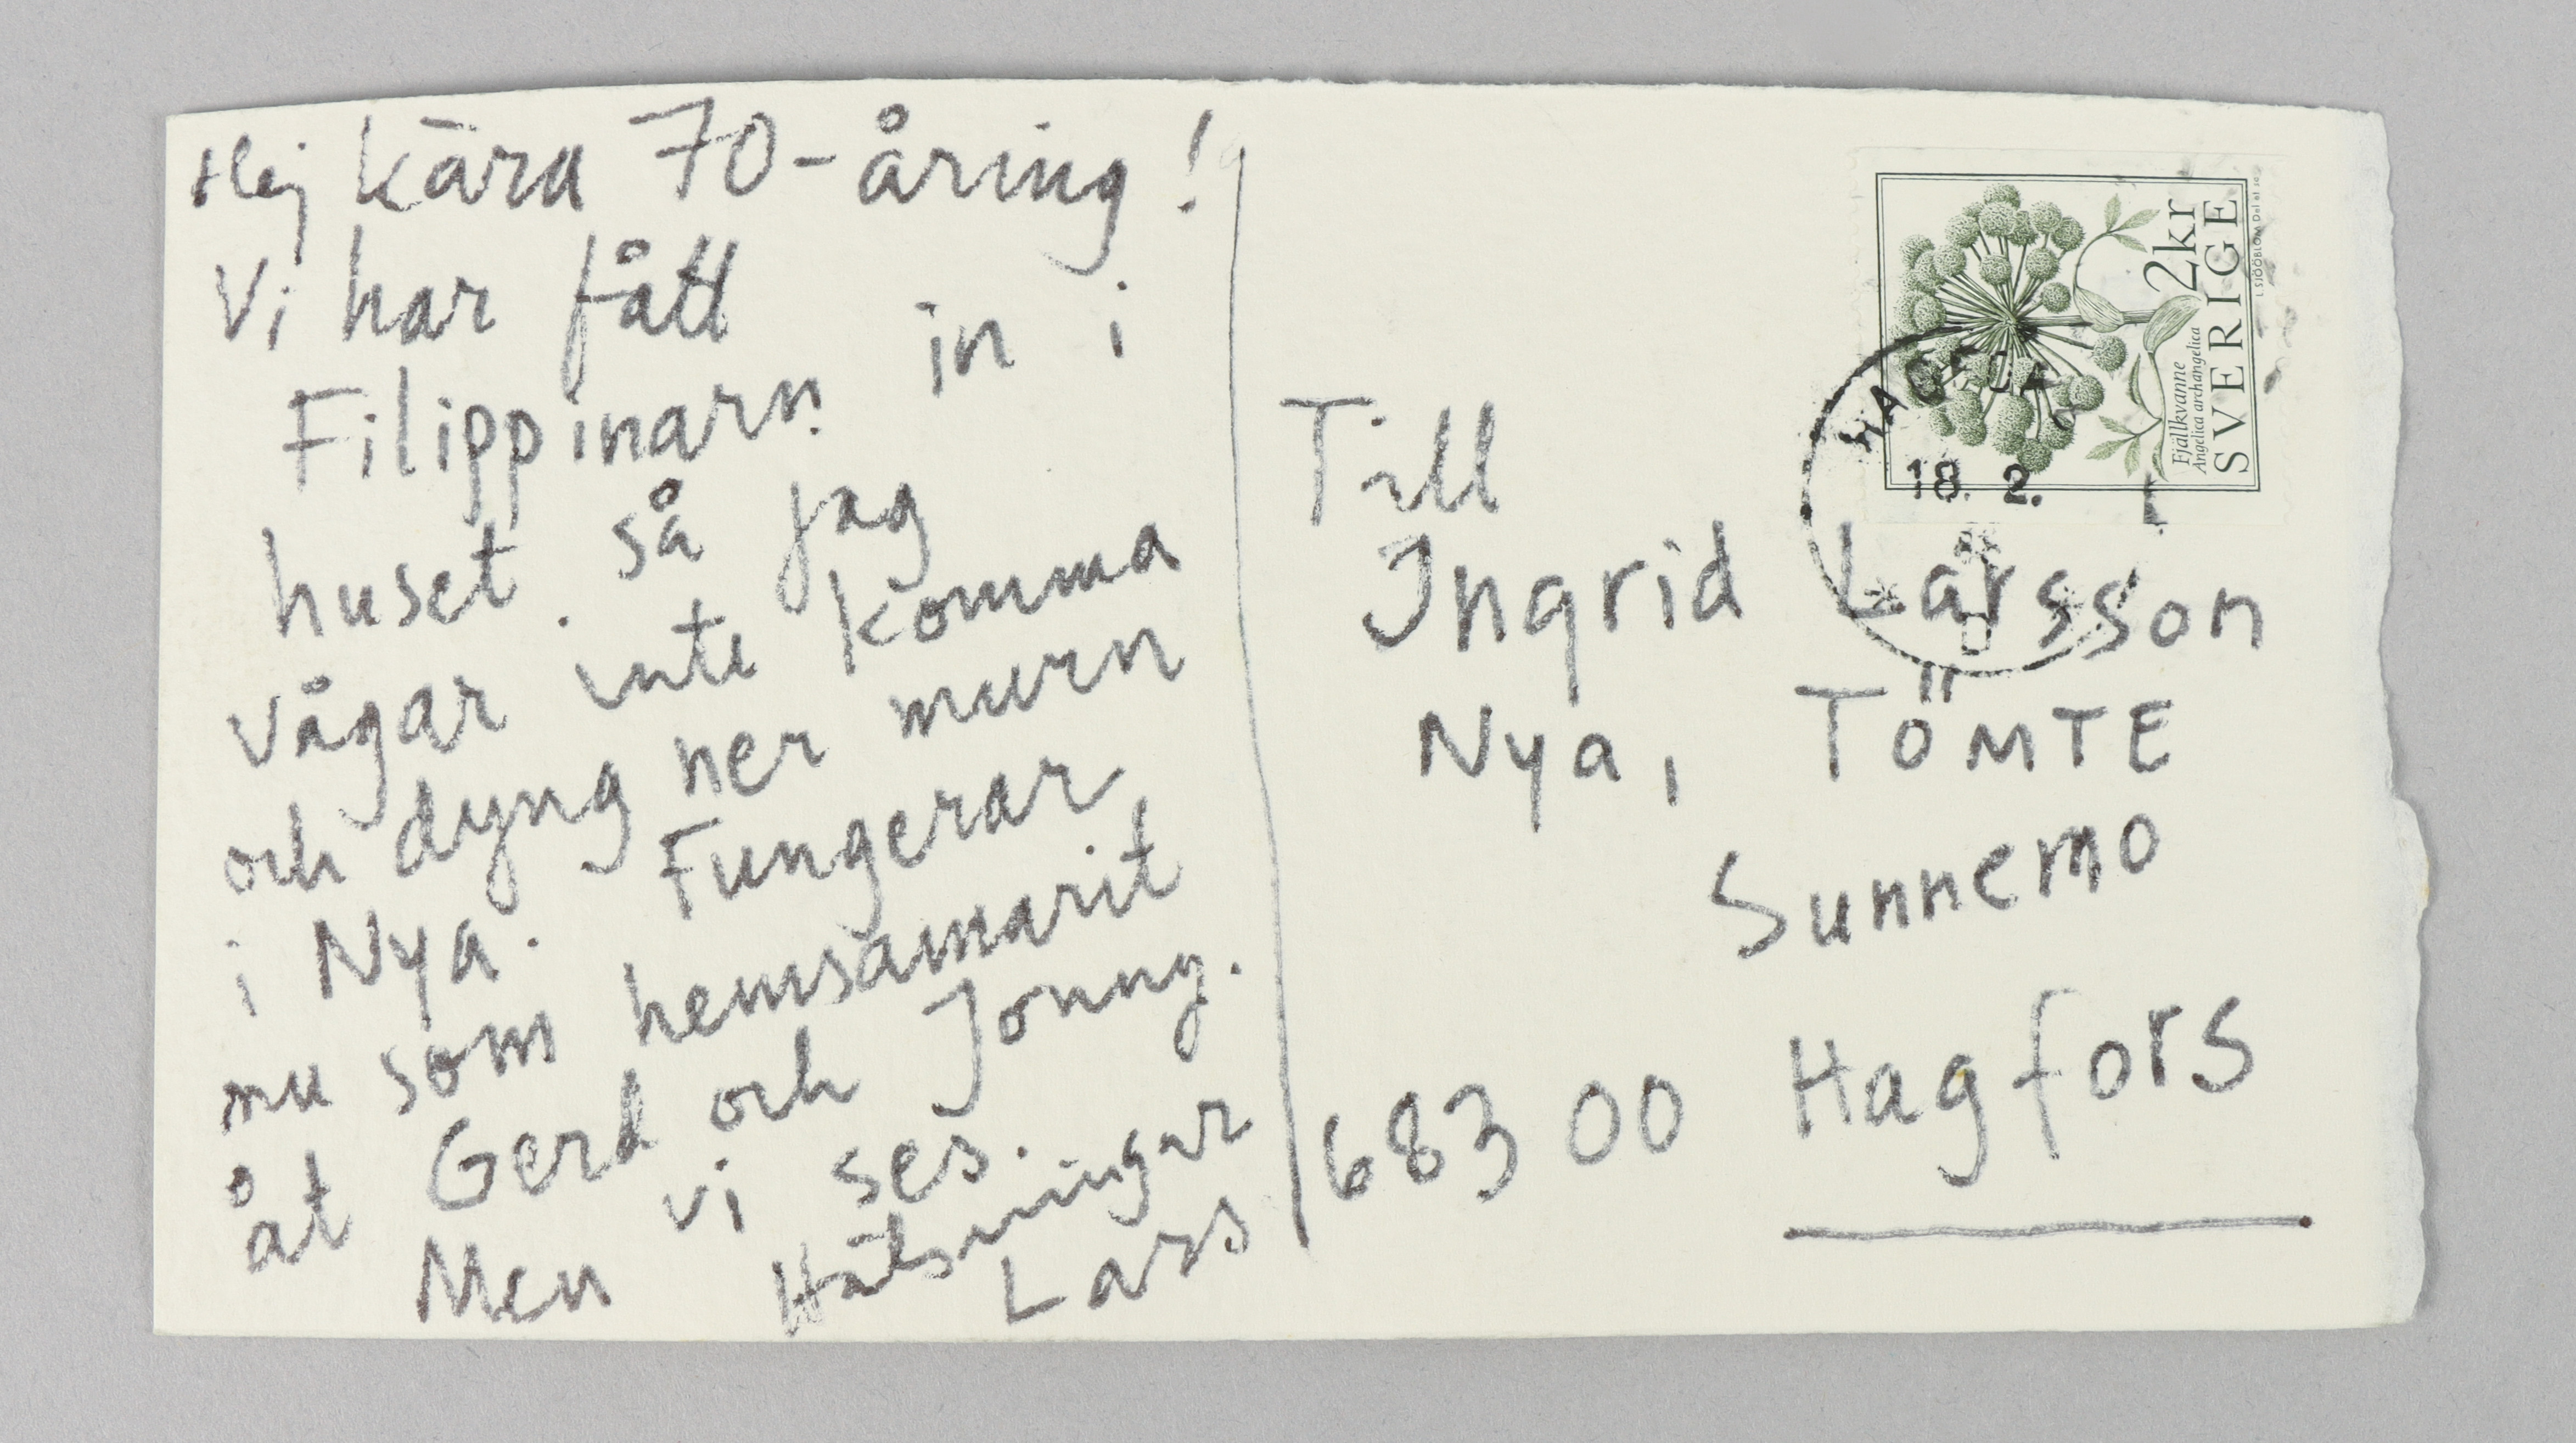 Hej kära 70-åring!
Vi har fått
Filippinarn in i
huset. så jag
vågar inte komma
och dyng ner murn
i Nya. Fungerar
nu som hemsamarit
åt Gerd och Jonny.
Men vi ses.
Hälsningar
Lars
Till
Ingrid Larsson
Nya, TÖMTE
Sunnemo
683 00 Hagfors
2kr
SVERIGE
Fjällkvanne
Angelica archangelica
18. 2.